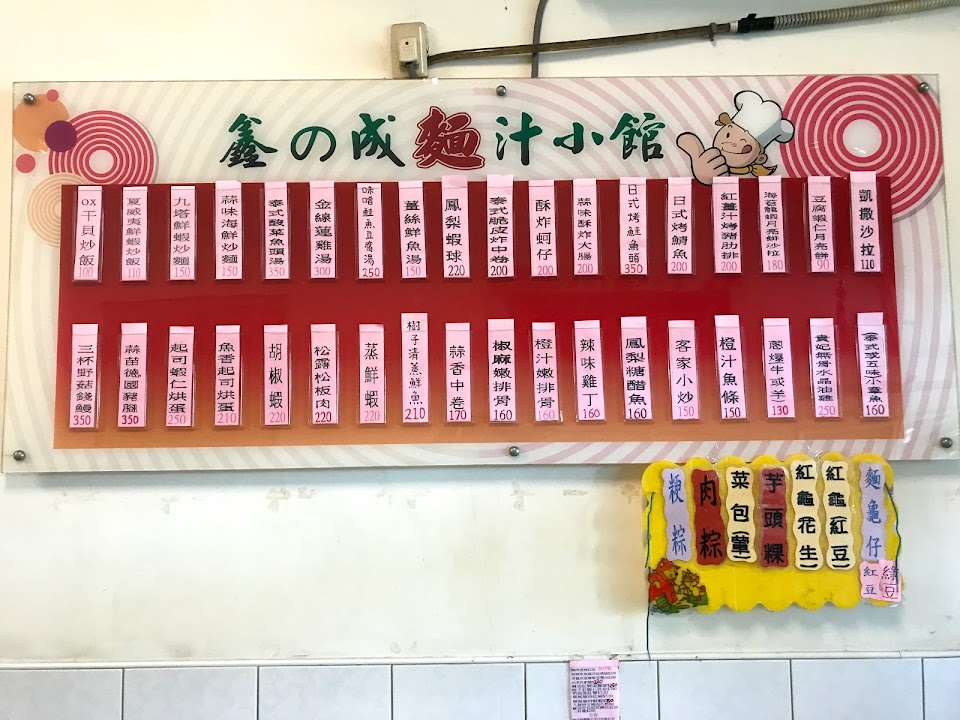 鑫の成麵汁小館
凱撒沙拉 110
豆腐蝦仁月亮餅 90
海苔龍蝦月亮餅沙拉 180
紅薑汁烤豬肋排 200
日式烤鯖魚 200
日式烤鮭魚頭 350
蒜味酥炸大腸 200
酥炸蚵仔 200
泰式脆皮炸中卷 200
鳳梨蝦球 220
薑絲鮮魚湯 150
味噌鮭魚豆腐湯 250
金線蓮雞湯 300
泰式酸菜魚頭湯 350
蒜味海鮮炒麵 150
九塔鮮蝦炒麵 150
夏威夷鮮蝦炒飯 110
OX干貝炒飯 100
(泰式或五味)小章魚 160
貴妃無骨水晶油雞 250
蔥爆(牛或羊) 130
橙汁魚條 150
客家小炒 150
鳳梨糖醋魚 160
辣味雞丁 160
橙汁嫩排骨 160
椒麻嫩排骨 160
蒜香中卷 170
樹子清蒸鮮魚 210
蒸鮮蝦 220
松露松板肉 220
胡椒蝦 220
魚香起司烘蛋 210
起司蝦仁烘蛋 250
蒜苗德國豬腳 350
三杯野菇錢鰻 350
麵龜仔
紅豆
綠豆
紅龜(紅豆)
紅龜(花生)
芋頭粿
菜包(葷)
肉粽
粳粽